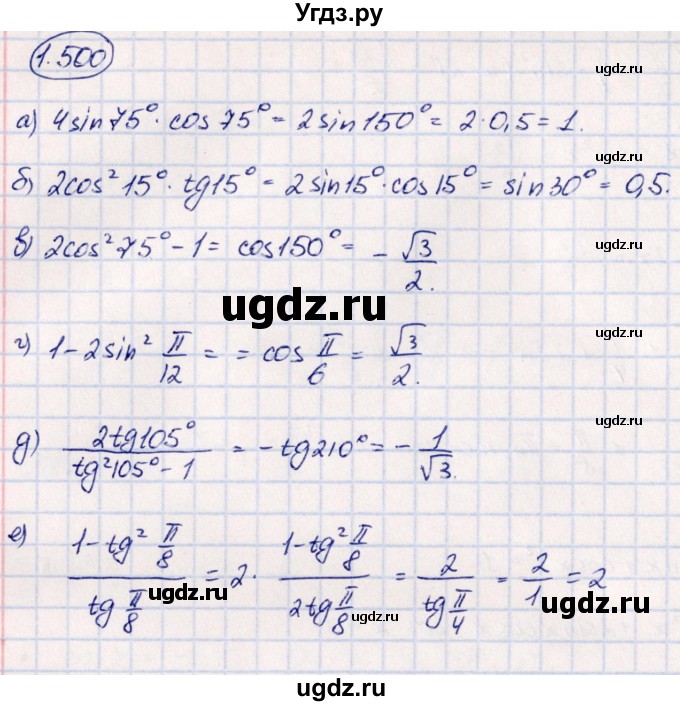 Угдз.ру
1.500
ugdz.ru
а) 4sin75°·cos75°=2sin150°= 2·0,5=1.
ugdz.ru
б) 2cos²15°·tg15°=2sin15°·cos15°=sin30°=0,5.
в) 2cos²75°-1= cos150°= -√3/2.
ugdz.ru ugdz.ru
ugdz.ru
г) 1-2sin² π/12 = = cos π/6 = √3/2.
ugdz.ru
д) 2tg105°/(tg²105°-1) = -tg210°= -1/√3.
ugdz.ru
е) (1-tg² π/8)/(tg π/8) = 2· (1-tg² π/8)/(2tg π/8) = 2/(tg π/4) = 2/1 = 2
ugdz.ru ugdz.ru ugdz.ru
ugdz.ru